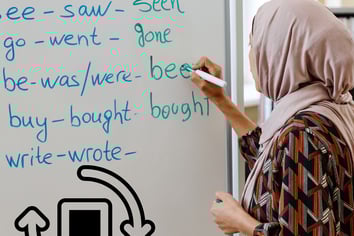 see - saw - seen
go - went - gone
be - was/were - bee
buy - bought - bought
write - wrote -